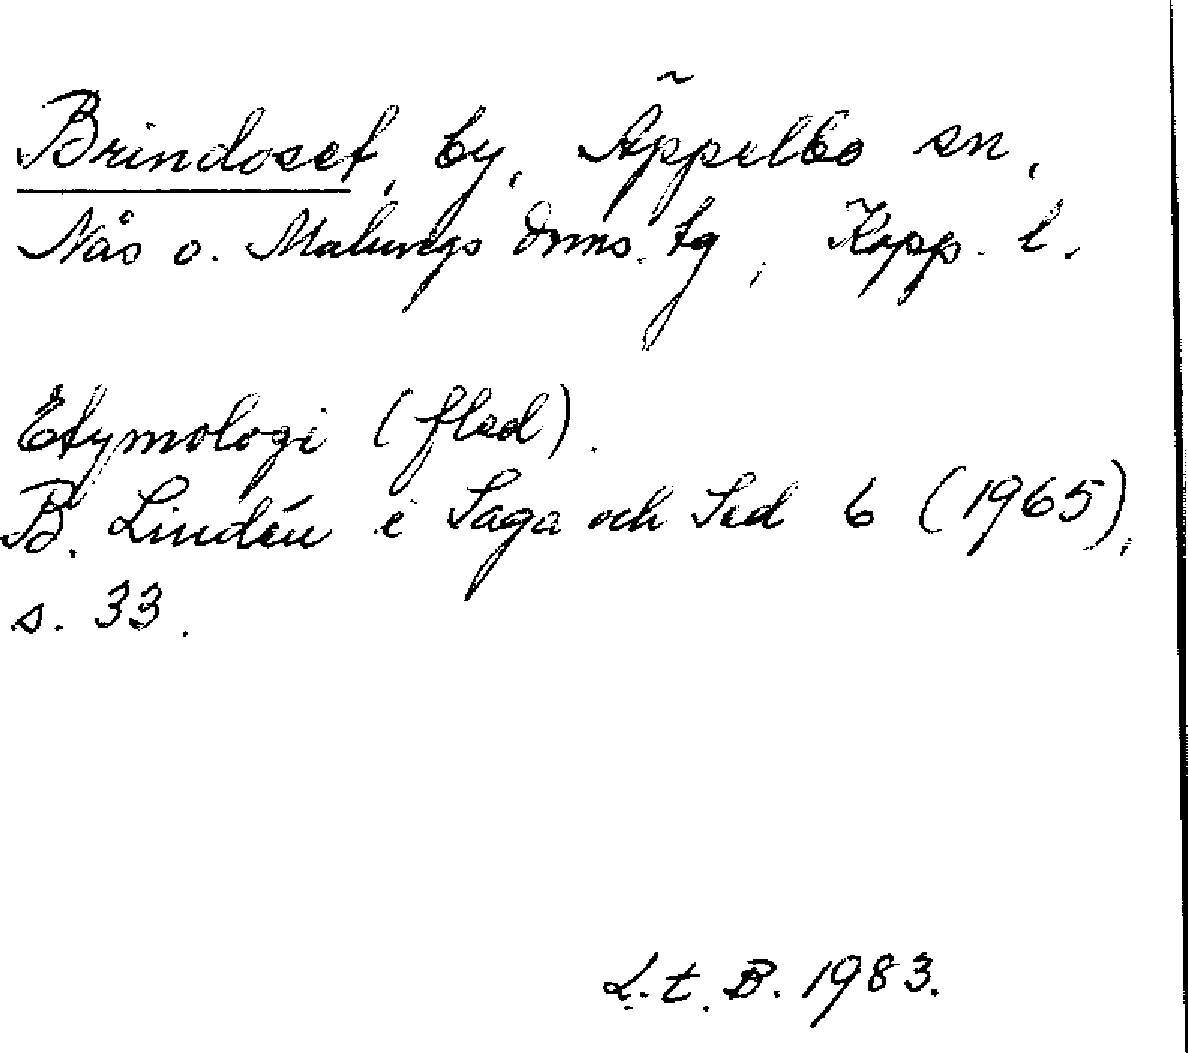 Brindoset, by, Äppelbo sn,
Nås o. Malungs dms. tg, Kopp. l.
Etymologi (fled).
B. Lindén i Saga och Sed 6 (1965),
s. 33.
L.t.B. 1983.